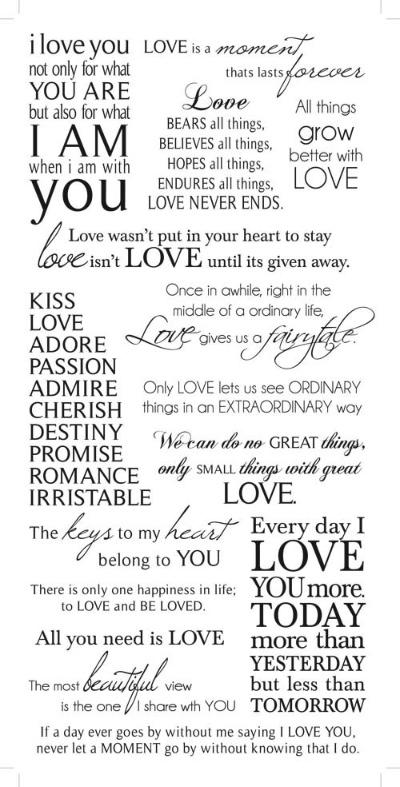 i love you
not only for what
YOU ARE
but also for what
I AM
when i am with
you
LOVE is a moment
thats lasts forever
Love
BEARS all things,
BELIEVES all things,
HOPES all things,
ENDURES all things,
LOVE NEVER ENDS.
All things
grow
better with
LOVE
Love wasn't put in your heart to stay
love isn't LOVE until its given away.
KISS
LOVE
ADORE
PASSION
ADMIRE
CHERISH
DESTINY
PROMISE
ROMANCE
IRRISTABLE
Once in awhile, right in the
middle of a ordinary life,
Love gives us a fairytale.
Only LOVE lets us see ORDINARY
things in an EXTRAORDINARY way
We can do no GREAT things,
only SMALL things with great
LOVE.
The keys to my heart
belong to YOU
There is only one happiness in life;
to LOVE and BE LOVED.
All you need is LOVE
The most beautiful view
is the one I share wth YOU
Every day I
LOVE
YOU more.
TODAY
more than
YESTERDAY
but less than
TOMORROW
If a day ever goes by without me saying I LOVE YOU,
never let a MOMENT go by without knowing that I do.